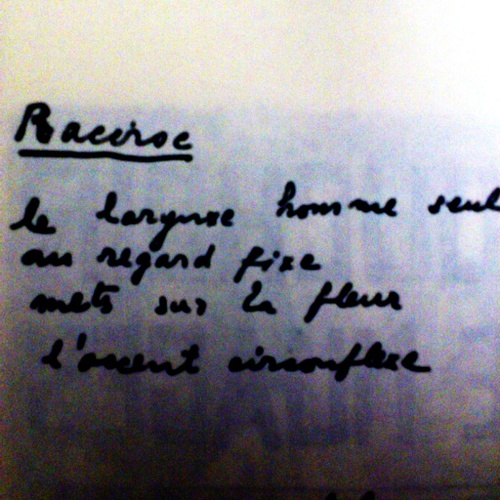 le larynxe homme seul
au regard fixe
mets sur la fleur
l'accent circonflexe